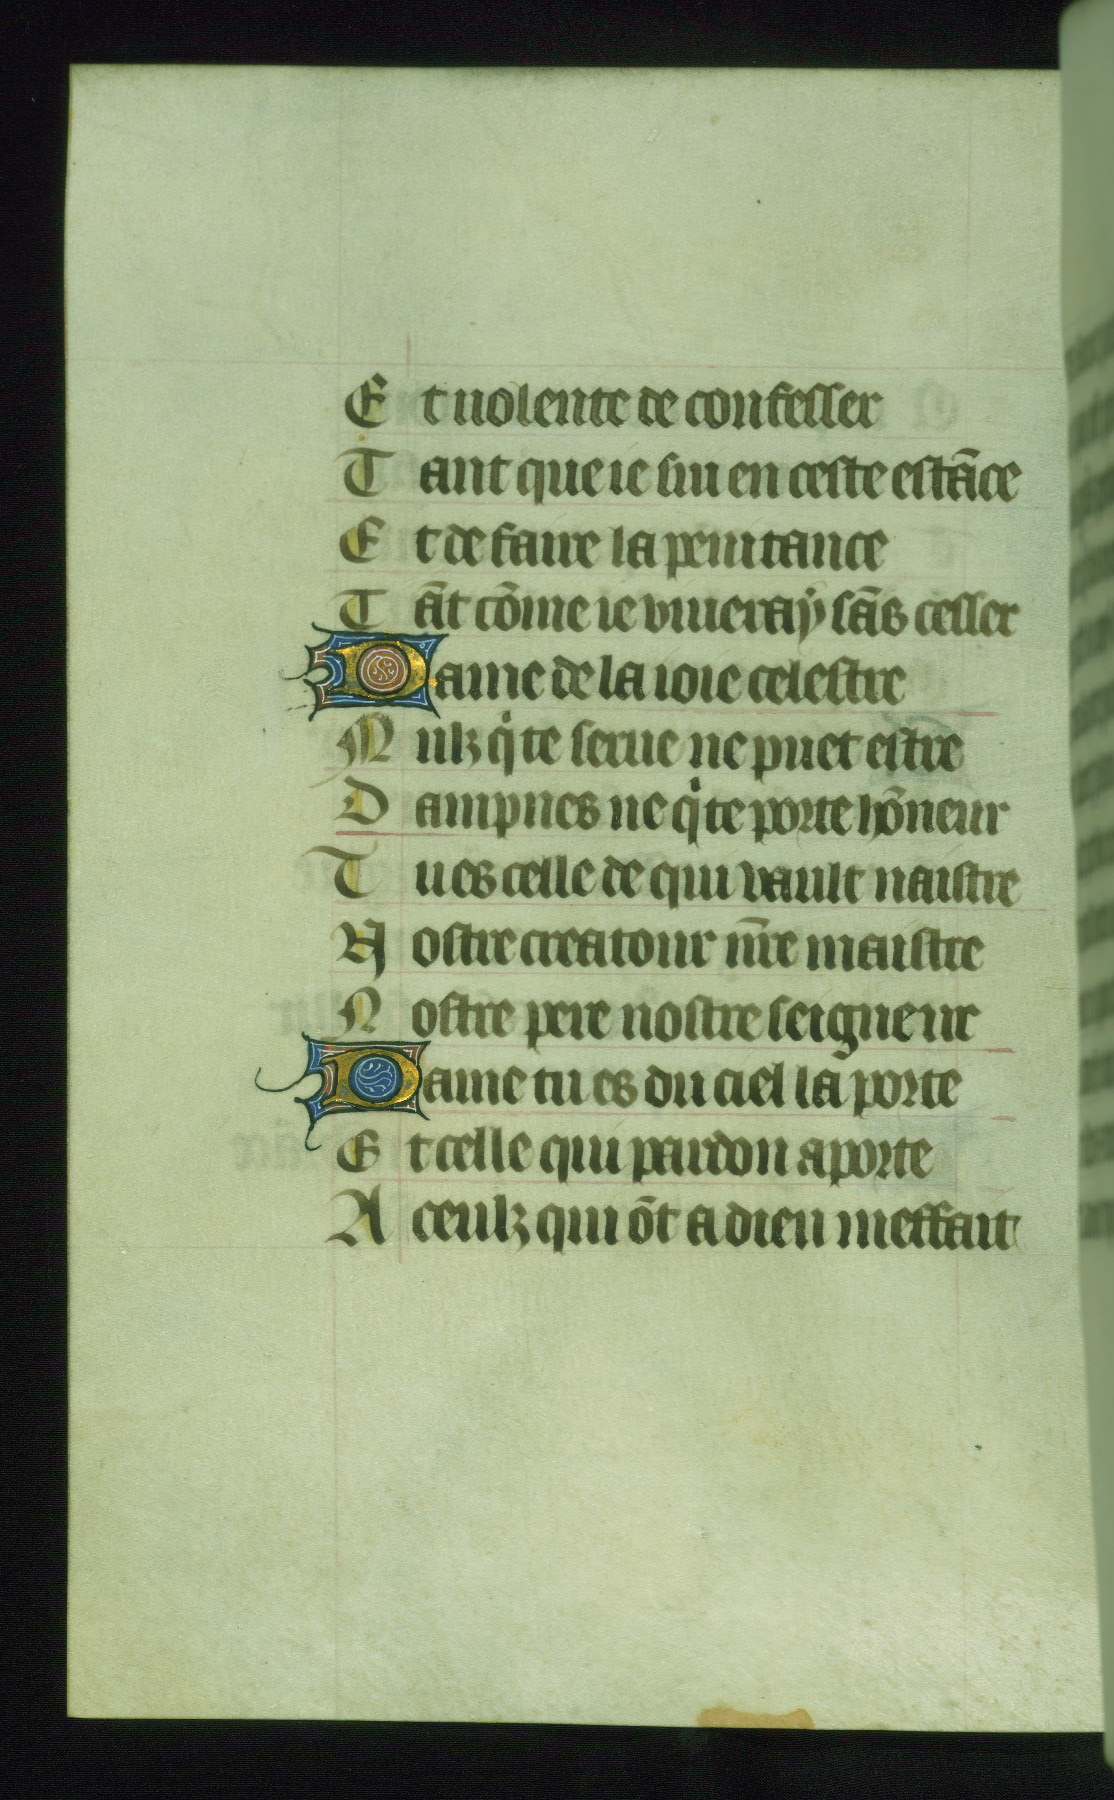 Et uolente de confesser
Tant que ie sui en ceste estāce
Et de faire la penitance
Tāt cōme ie viueray sās cesser
Dame de la ioie celestre
Nulz q̇ te serue ne puet estre
Dampnes ne q̇ te porte hōneur
Tu es celle de qui vault naistre
Nostre creatour nr̄e maistre
Nostre pere nostre seigneur
Dame tu es du ciel la porte
Et celle qui pardon aporte
A ceulz qui ōt a dieu meffait